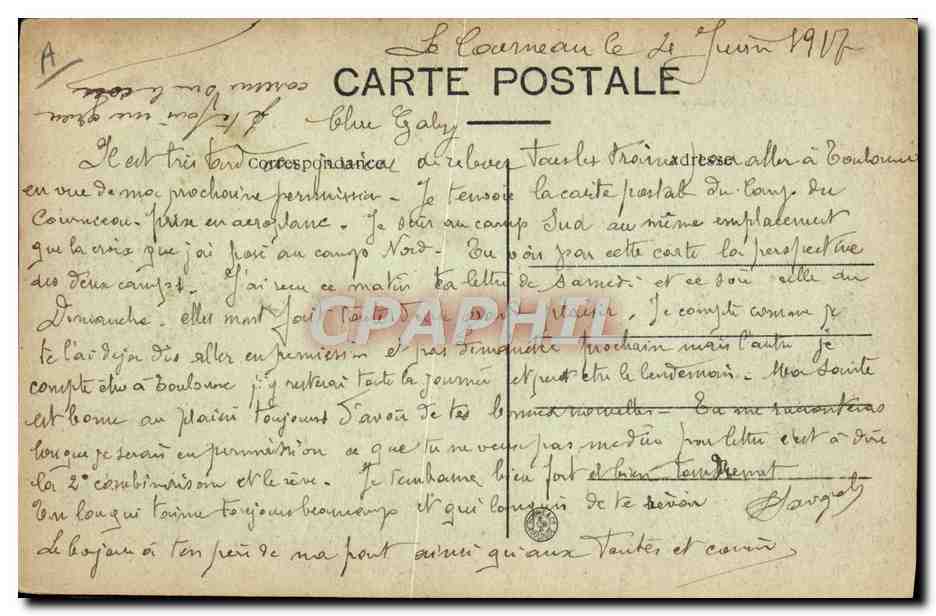 A
Le Courneau le 4 Juin 1917
CARTE POSTALE
Chere Gaby
Correspondance
adresse
Il est très tard je viens de relever tous les trains pour aller à Toulouse
en vue de ma prochaine permission - Je t'envoie la carte postal du Camp du
Courneau - prise en aeroplane. Je suis au camp Sud au même emplacement
que la croix que j'ai posé au camp Nord - Tu vois par cette carte la perspective
des deux camps. J'ai recu ce matin ta lettre de Samedi et ce soir celle du
Dimanche. elles m'ont fait toutes deux grand plaisir. Je compte comme je
te l'ai deja dis aller en permission et pas dimanche prochain mais l'autre je
compte être à Toulouse j'y resterai toute la journée et peut être le lendemain - Ma Santé
est bonne au plaisir toujours d'avoir de tes bonnes nouvelles - Tu me raconteras
lorsque je serais en permission ce que tu ne veux pas me dire pour lettre c'est à dire
la 2e combinaison et le rêve. Je t'embrasse bien fort et bien tendrement
Ton qui t'aime toujours beaucoup et qui languis de te revoir
Le bonjour à ton père de ma part ainsi qu'aux tantes et cousin
CPAPHIL